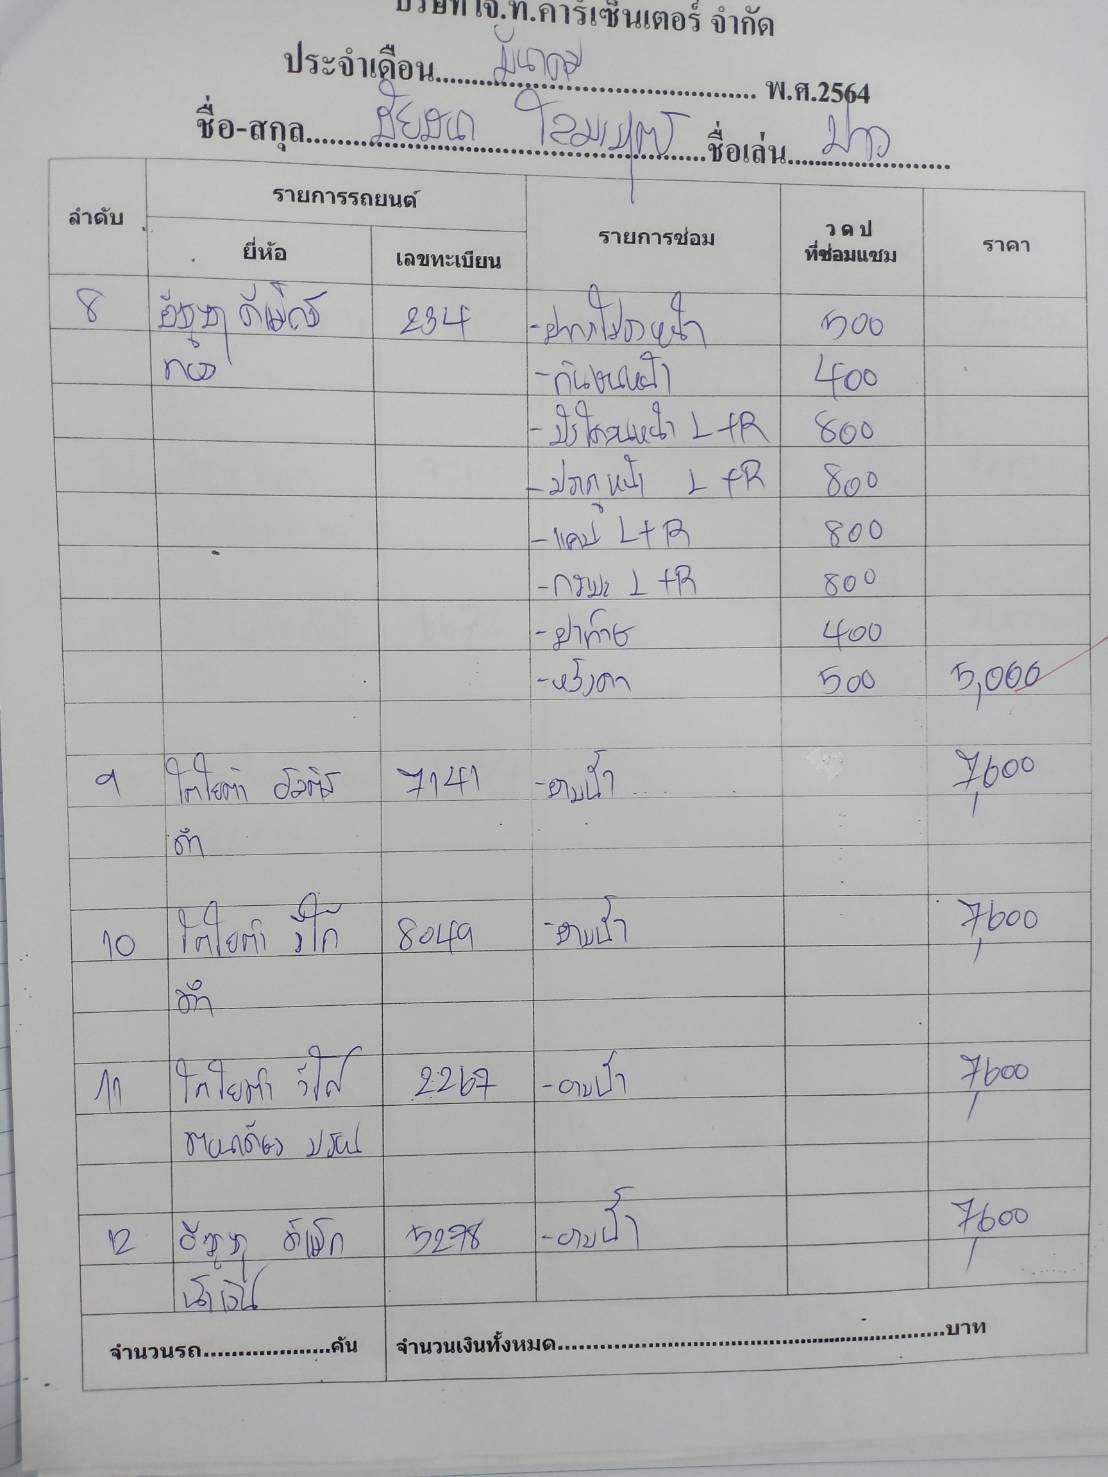 บริษัท เจ.ท.คาร์เซ็นเตอร์ จำกัด
ประจำเดือน มีนาคม พ.ศ.2564
ชื่อ-สกุล ชัยชนะ ชื่อเล่น บ่าว
ลำดับ รายการรถยนต์ รายการซ่อม ว ด ป ที่ซ่อมแซม ราคา
ยี่ห้อ เลขทะเบียน
8 อีซูซุ ดีแม็กซ์ 234 -ฝากระโปรงหน้า 500
ทอง -กันชนหน้า 400
-บังโคลนหน้า L+R 800
-ประตูหน้า L+R 800
-แคป L+R 800
-กระบะ L+R 800
-ฝาท้าย 400
-หลังคา 500 5,000
9 โตโยต้า อัลติส 7141 -อาบน้ำ 7,600
ดำ
10 โตโยต้า วีโก้ 8049 -อาบน้ำ 7,600
ดำ
11 โตโยต้า วีโก้ 2267 -อาบน้ำ 7,600
ตอนเดียว บรอน
12 อีซูซุ ดีแม็ก 5278 -อาบน้ำ 7,600
น้ำเงิน
จำนวนรถ....................คัน จำนวนเงินทั้งหมด....................บาท